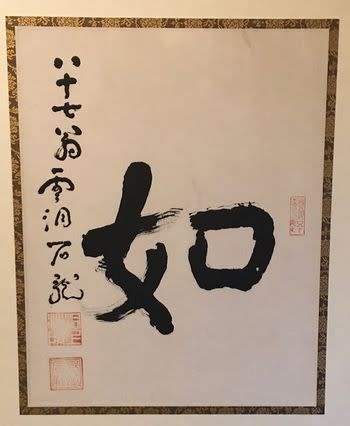 如
八十七翁雲洞石龍